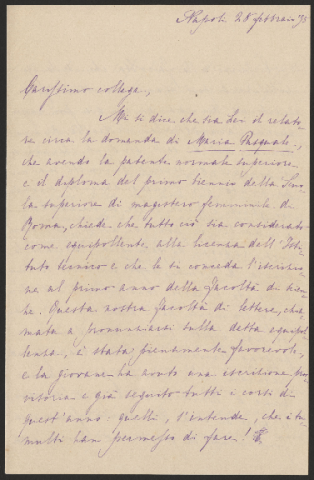 Napoli 28 febbraio 9
Carissimo collega,
Mi si dice che sia Lei il relato-
re circa la domanda di Maria Pasquale,
che avendo la patente normale superiore
e il diploma del primo biennio della Scuo-
la superiore di magistero femminile di
Roma, chiede che tutto ciò sia considerato
come equipollente alla licenza dell'Isti-
tuto tecnico e che le si conceda l'iscrizio-
ne al primo anno della facoltà di
Questa nostra facoltà di lettere, chia-
mata a pronunziarsi sulla detta equipol-
lenza, è stata pienamente favorevole,
e la giovane ha avuto una iscrizione prov-
visoria e già seguito tutti i corsi di
quest'anno: quelli, s'intende, che i tu-
multi han permesso di fare!